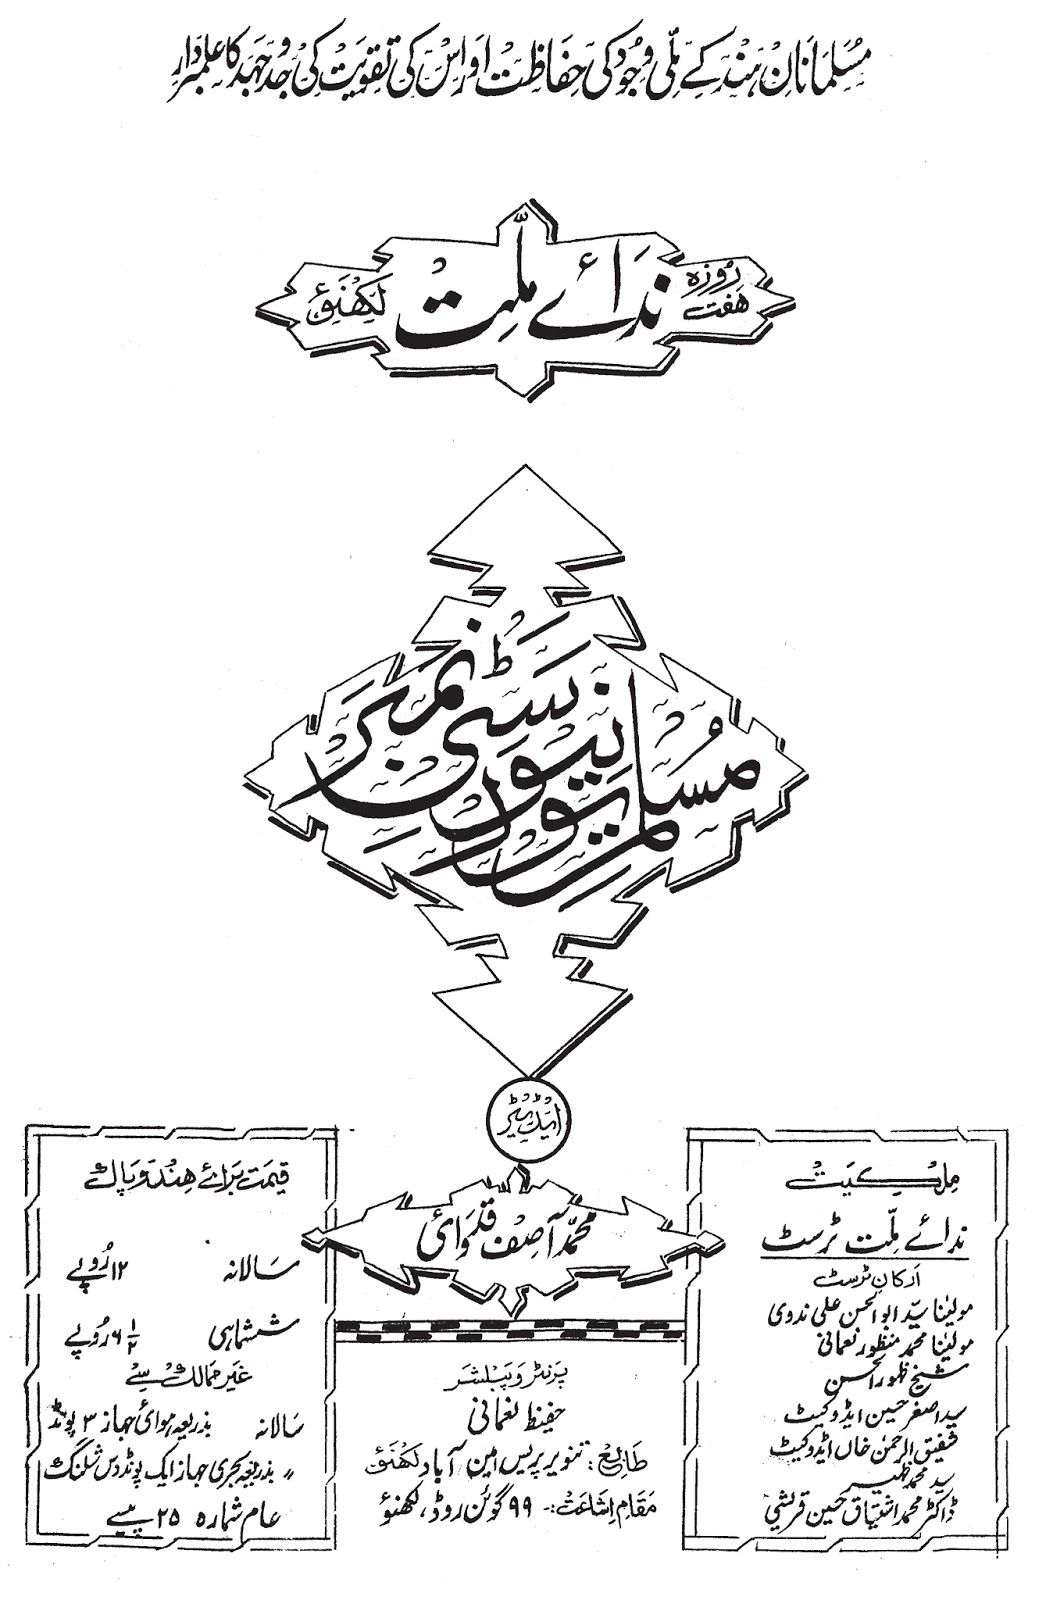 مسلمانان ہند کے ملّی وجود کی حفاظت اور اس کی تقویت کی جدوجہد کا علمبردار
ہفت روزہ ندائے ملّت لکھنؤ
مسلم یونیورسٹی نمبر
ایڈیٹر
محمّد آصف قدوائی
ملکیت
ندائے ملّت ٹرسٹ
ارکان ٹرسٹ
مولینا سیّد ابوالحسن علی ندوی
مولینا محمد منظور نعمانی
شیخ ظہور الحسن
سید اصغر حسین ایڈوکیٹ
شفیق الرحمٰن خاں ایڈوکیٹ
سید محمد ظہیر
ڈاکٹر محمد اشتیاق حسین قریشی
پرنٹر و پبلشر
حفیظ نعمانی
طابع: تنویر پریس امین آباد لکھنؤ
مقام اشاعت:- ۹۹ گوئن روڈ، لکھنؤ
قیمت برائے ہند و پاک
سالانہ ۱۲ روپے
ششماہی ۶ ۱/۲ روپے
غیر ممالک سے
سالانہ بذریعہ ہوائی جہاز ۳ پونڈ
〃 بذریعہ بحری جہاز ایک پونڈ دس شلنگ
عام شمارہ ۲۵ پیسے